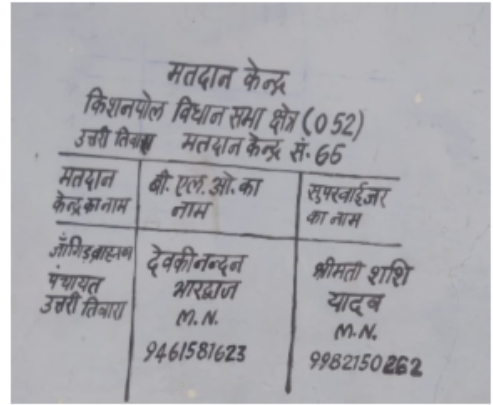 मतदान केन्द्र
किशनपोल विधान सभा क्षेत्र (052)
उत्तरी तिबारा मतदान केन्द्र सं. 66
मतदान
केन्द्र का नाम
बी. एल. ओ. का
नाम
सुपरवाईजर
का नाम
जाँगिड़ ब्राहमण
पंचायत
उत्तरी तिबारा
देवकीनन्दन
भारद्वाज
M.N.
9461581623
श्रीमती शशि
यादव
M.N.
9982150262